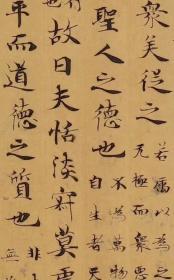 衆美從之 若厲以為
无極而衆惡
聖人之德也 不為萬物
自生者天
故曰夫恬淡寂莫
平而道德之質也 非